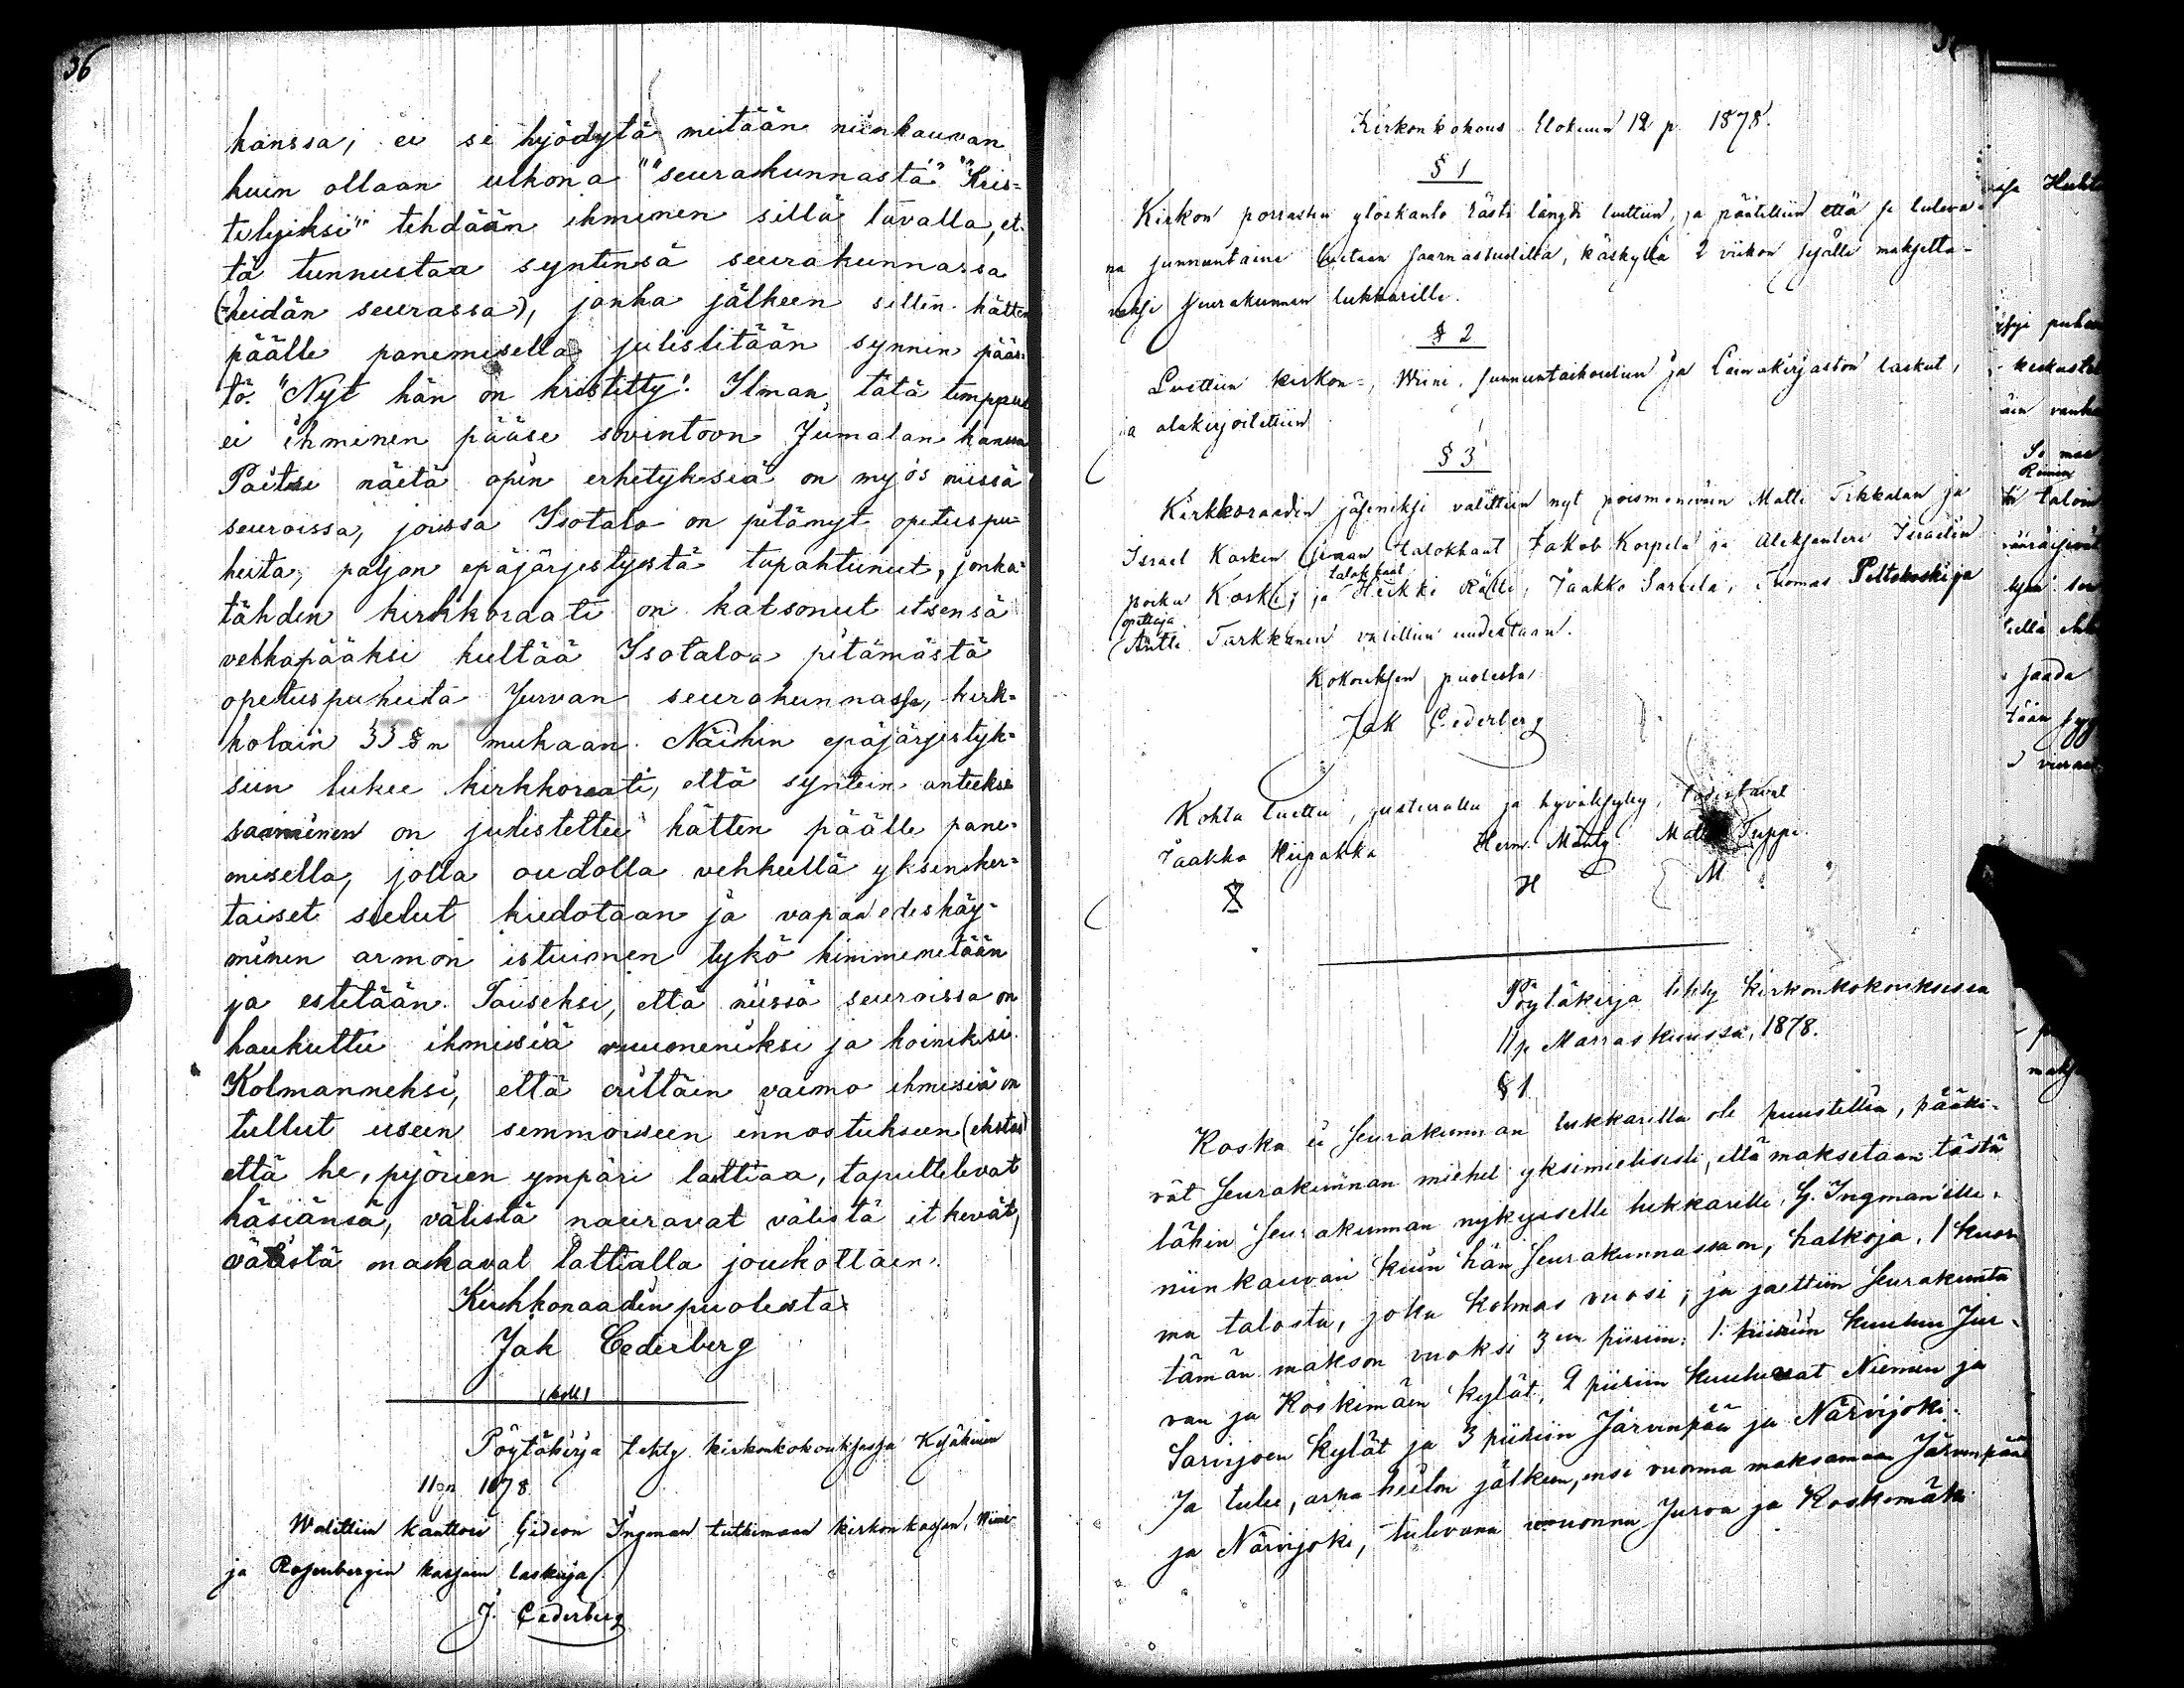 36
kanssa; ei se hyödytä mitään niinkauvan
kuin ollaan ulkona ""seurakunnasta" "Kris-
tityiksi"" tehdään ihminen sillä tavalla, et-
tä tunnustaa syntinsä seurakunnassa
(heidän seurassa), jonka jälkeen sitten kätten
päälle panemisella julistetaan synnin pääs-
tö. "Nyt hän on kristitty"! Ilman tätä temppua
ei ihminen pääse sovintoon Jumalan kanssa
Paitse näitä opin erhetyksiä on myös niissä
seuroissa, joissa Isotalo on pitänyt opetuspu-
heita, paljon epäjärjestystä tapahtunut, jonka-
tähden kirkkoraati on katsonut itsensä
velkapääksi kieltää Isotaloa pitämästä
opetuspuheita Jurvan seurakunnassa, kirk-
kolain 33 §n mukaan. Näihin epäjärjestyk-
siin lukee kirkkoraati, että syntein anteeksi
saaminen on julistettu kätten päälle pane-
misella, jolla oudolla vehkeellä yksinker-
taiset sielut kiedotaan ja vapaa edeskäy-
minen armon istuimen tykö himmenetään
ja estetään. Toiseksi, että niissä seuroissa on
haukuttu ihmisiä ruumeniksi ja koiniksi.
Kolmanneksi, että erittäin vaimo ihmisiä on
tullut useen semmoiseen innostukseen (ekstas)
että he, pyörien ympäri lattiaa, taputtelevat
käsiänsä, välistä nauravat välistä itkevät,
välistä makaavat lattialla joukottain.
Kirkkoraadin puolesta
Jak Cederberg
Pöytäkirja tehty kirkonkokouksessa Kesäkuun
11 p. 1878.
Walittiin kanttori Gideon Ingman tutkimaan kirkon kassan, Wiini-
ja Rosenbergin kassain laskuja
J. Cederberg
Kirkonkokous Elokuun 12 p. 1878.
§ 1
Kirkon porrastus ylöskanto rästi längdi luettiin, ja päätettiin että se tuleva-
na sunnuntaina luetaan saarnastuolilta, käskyllä 2 viikon sisällä maksetta-
vaksi seurakunnan lukkarille.
§ 2
Luettiin kirkon-, Wiini, sunnuntaikoulun ja Lainakirjaston laskut,
ja alakirjoitettiin
§ 3
Kirkkoraadin jäseniksi valittiin nyt poismenevein Matti Tikkalan ja
Israel Kosken sijaan talokkaat Jakob Korpela ja Aleksanteri Israelin
poika Koski; ja talokkaat Heikki Rätti, Jaakko Sarvela, Thomas Peltokoski ja
opettaja
Antti Tarkkanen valittiin uudestaan.
Kokouksen puolesta
Jak Cederberg
Kohta luettu, justeerattu ja hyväksytty, todistavat
Jaakko Hiipakka Herm. Mänty Matti Tuppi.
H M
Pöytäkirja tehty Kirkonkokouksessa
11 p Marraskuussa, 1878.
§ 1.
Koska ei Seurakunnan lukkarilla ole puustellia, päätti-
vät Seurakunnan miehet yksimielisesti, että maksetaan tästä
lähin Seurakunnan nykyiselle lukkarille G. Ingman'ille,
niinkauvan kuin hän Seurakunnassa on, halkoja, 1 kuor-
ma talosta, joka kolmas vuosi, ja jaettiin Seurakunta
tämän makson vuoksi 3een piiriin: 1. piiriin kuuluu Jur-
van ja Koskimäen kylät, 2 piiriin kuuluvat Niemen ja
Sarvijoen kylät ja 3 piiriin Järvenpää ja Närvijoki.
Ja tulee, arpa heiton jälkeen, ensi vuonna maksamaan Järvenpää
ja Närvijoki, tulevana vuonna Jurva ja Koskimäki